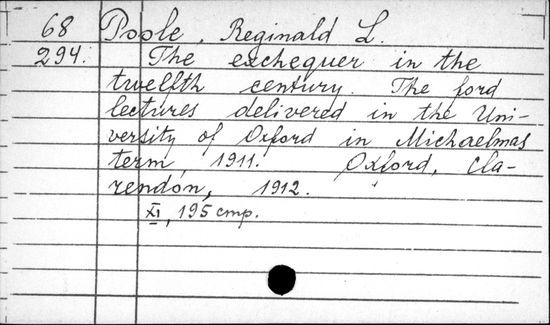 68 Poole, Reginald L.
294. The exchequer in the
twelfth century. The ford
lectures delivered in the Uni-
versity of Oxford in Michaelmas
term, 1911. Oxford, Cla-
rendon, 1912.
XI, 195 cmp.